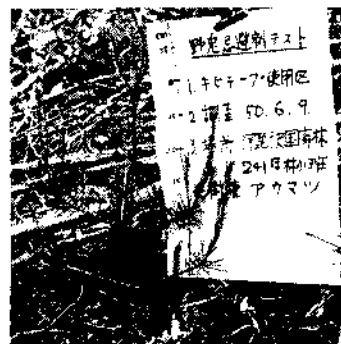 野兎忌避剤テスト
1. キヒテープ使用区
2 調査 50. 6. 9.
国有林
241 林小班
アカマツ